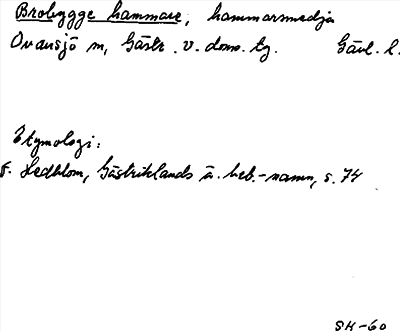 Brobygge hammare, hammarsmedja
Ovansjö sn, Gästr. v. doms. tg. Gävl. l.
Etymologi:
F. Hedblom, Gästriklands ä. beb.-namn, s. 74
SH-60